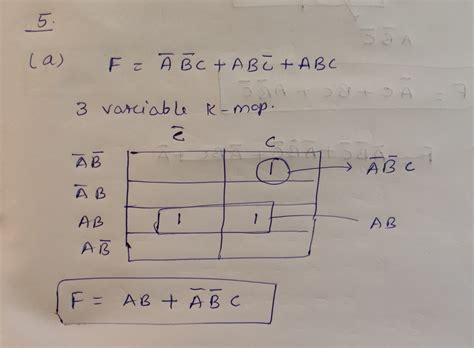 5.
(a) F = A̅ B̅ C + A B C̅ + A B C
3 variable K-map.
C̅ C
A̅ B̅ 1 → A̅ B̅ C
A̅ B
A B 1 1 AB
A B̅
F = AB + A̅ B̅ C